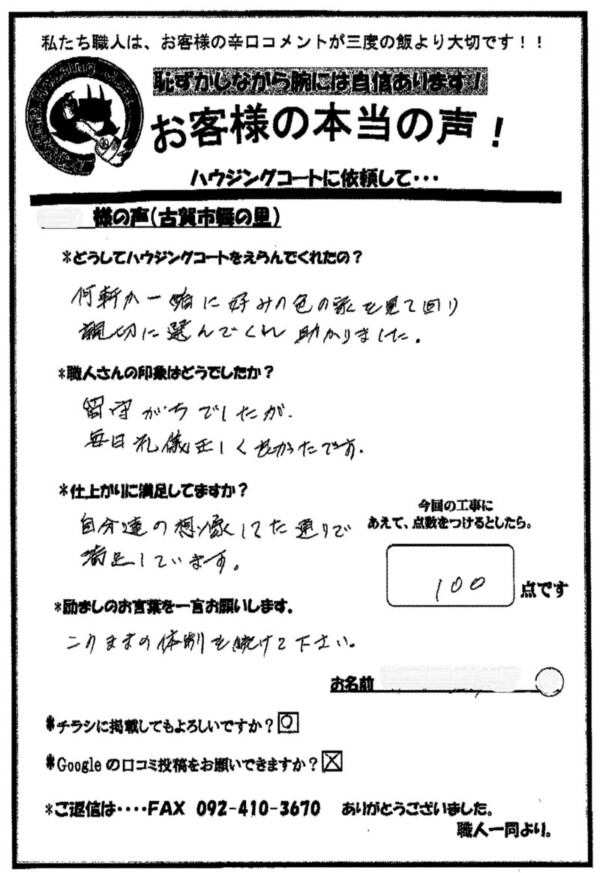 私たち職人は、お客様の辛口コメントが三度の飯より大切です！！
恥ずかしながら腕には自信あります！
お客様の本当の声！
ハウジングコートに依頼して・・・
様の声(古賀市舞の里)
*どうしてハウジングコートをえらんでくれたの？
何軒か一緒に好みの色の家を見て回り
親切に選んでくれ助かりました。
*職人さんの印象はどうでしたか？
留守がちでしたが、
毎日礼儀正しく良かったです。
*仕上がりに満足してますか？
自分達の想像してた通りで
満足しています。
今回の工事に
あえて、点数をつけるとしたら。
100 点です
*励ましのお言葉を一言お願いします。
このままの体制を続けて下さい。
お名前
*チラシに掲載してもよろしいですか？
*Googleの口コミ投稿をお願いできますか？
*ご返信は・・・・FAX 092-410-3670 ありがとうございました。
職人一同より。